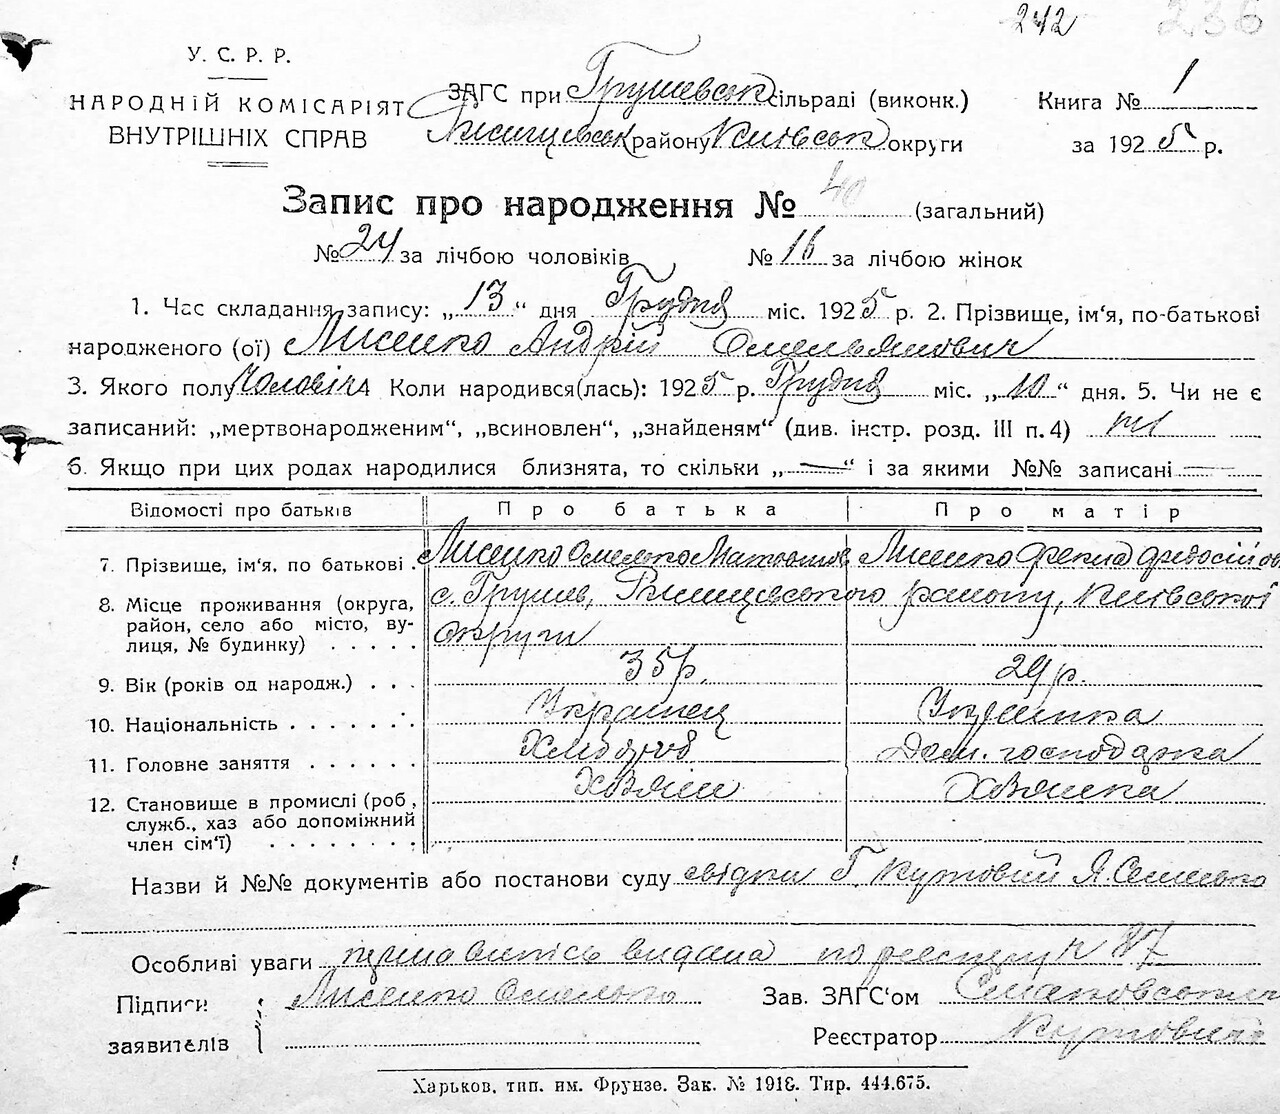 242 236
У. С. Р. Р.
НАРОДНІЙ КОМІСАРІЯТ
ВНУТРІШНІХ СПРАВ
ЗАГС при Грушевськ сільраді (виконк.)
району Київськ округи
Книга № 1
за 1925 р.
Запис про народження № 40 (загальний)
№ 24 за лічбою чоловіків № 16 за лічбою жінок
1. Час складання запису: „13" дня Грудня міс. 1925 р. 2. Прізвище, ім'я, по-батькові
народженого (ої) Лисенко Андрій Омельянович
3. Якого полу Чоловіч 4 Коли народився(лась): 1925 р. Грудня міс. „10" дня. 5. Чи не є
записаний: „мертвонародженим", „всиновлен", „знайденям" (див. інстр. розд. III п. 4) ні
6. Якщо при цих родах народилися близнята, то скільки „—" і за якими №№ записані —
Відомості про батьків Про батька Про матір
7. Прізвище, ім'я, по батькові . Лисенко Омелько Лисенко Фекла
8. Місце проживання (округа, район, село або місто, ву-лиця, № будинку) . . . . . с. Грушев, району, Київської
округи
9. Вік (років од народж.) . . . 35 р. 29 р.
10. Національність . . . . . . . Українец Українка
11. Головне заняття . . . . . . Хлібороб Дом. господарка
12. Становище в промислі (роб., служб., хаз або допоміжний член сім'ї) . . . . . . . . Хозяїн Хозяйка
Назви й №№ документів або постанови суду свідки Г. Кутовий Я. Семенько
Особливі уваги видана по реєстру № 87
Підписи
заявителів Лисенко Омелько
Зав. ЗАГС'ом
Реєстратор
Харьков, тип. им. Фрунзе. Зак. № 1918. Тир. 444.675.